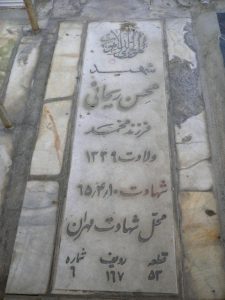 شهید
محسن ریحانی
فرزند محمد
ولادت ۱۳۳۹
شهادت ۶۵/۴/۱۰
محل شهادت مهران
قطعه ردیف شماره
۵۳ ۱۶۷ ۶